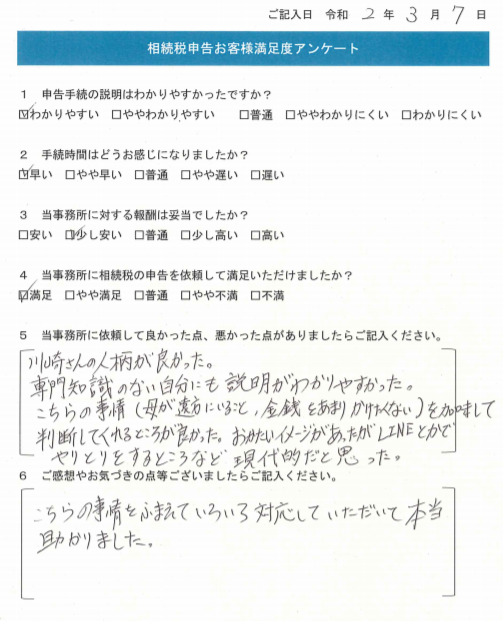 ご記入日 令和 2 年 3 月 7 日
相続税申告お客様満足度アンケート
1 申告手続の説明はわかりやすかったですか?
☑わかりやすい □ややわかりやすい □普通 □ややわかりにくい □わかりにくい
2 手続時間はどうお感じになりましたか?
☑早い □やや早い □普通 □やや遅い □遅い
3 当事務所に対する報酬は妥当でしたか?
□安い ☑少し安い □普通 □少し高い □高い
4 当事務所に相続税の申告を依頼して満足いただけましたか?
☑満足 □やや満足 □普通 □やや不満 □不満
5 当事務所に依頼して良かった点、悪かった点がありましたらご記入ください。
川崎さんの人柄が良かった。
専門知識のない自分にも説明がわかりやすかった。
こちらの事情(母が遠方にいること、金銭をあまりかけたくない)を加味して
判断してくれるところが良かった。おかたいイメージがあったがLINEとかで
やりとりをするところなど現代的だと思った。
6 ご感想やお気づきの点等ございましたらご記入ください。
こちらの事情をふまえていろいろ対応していただいて本当
助かりました。